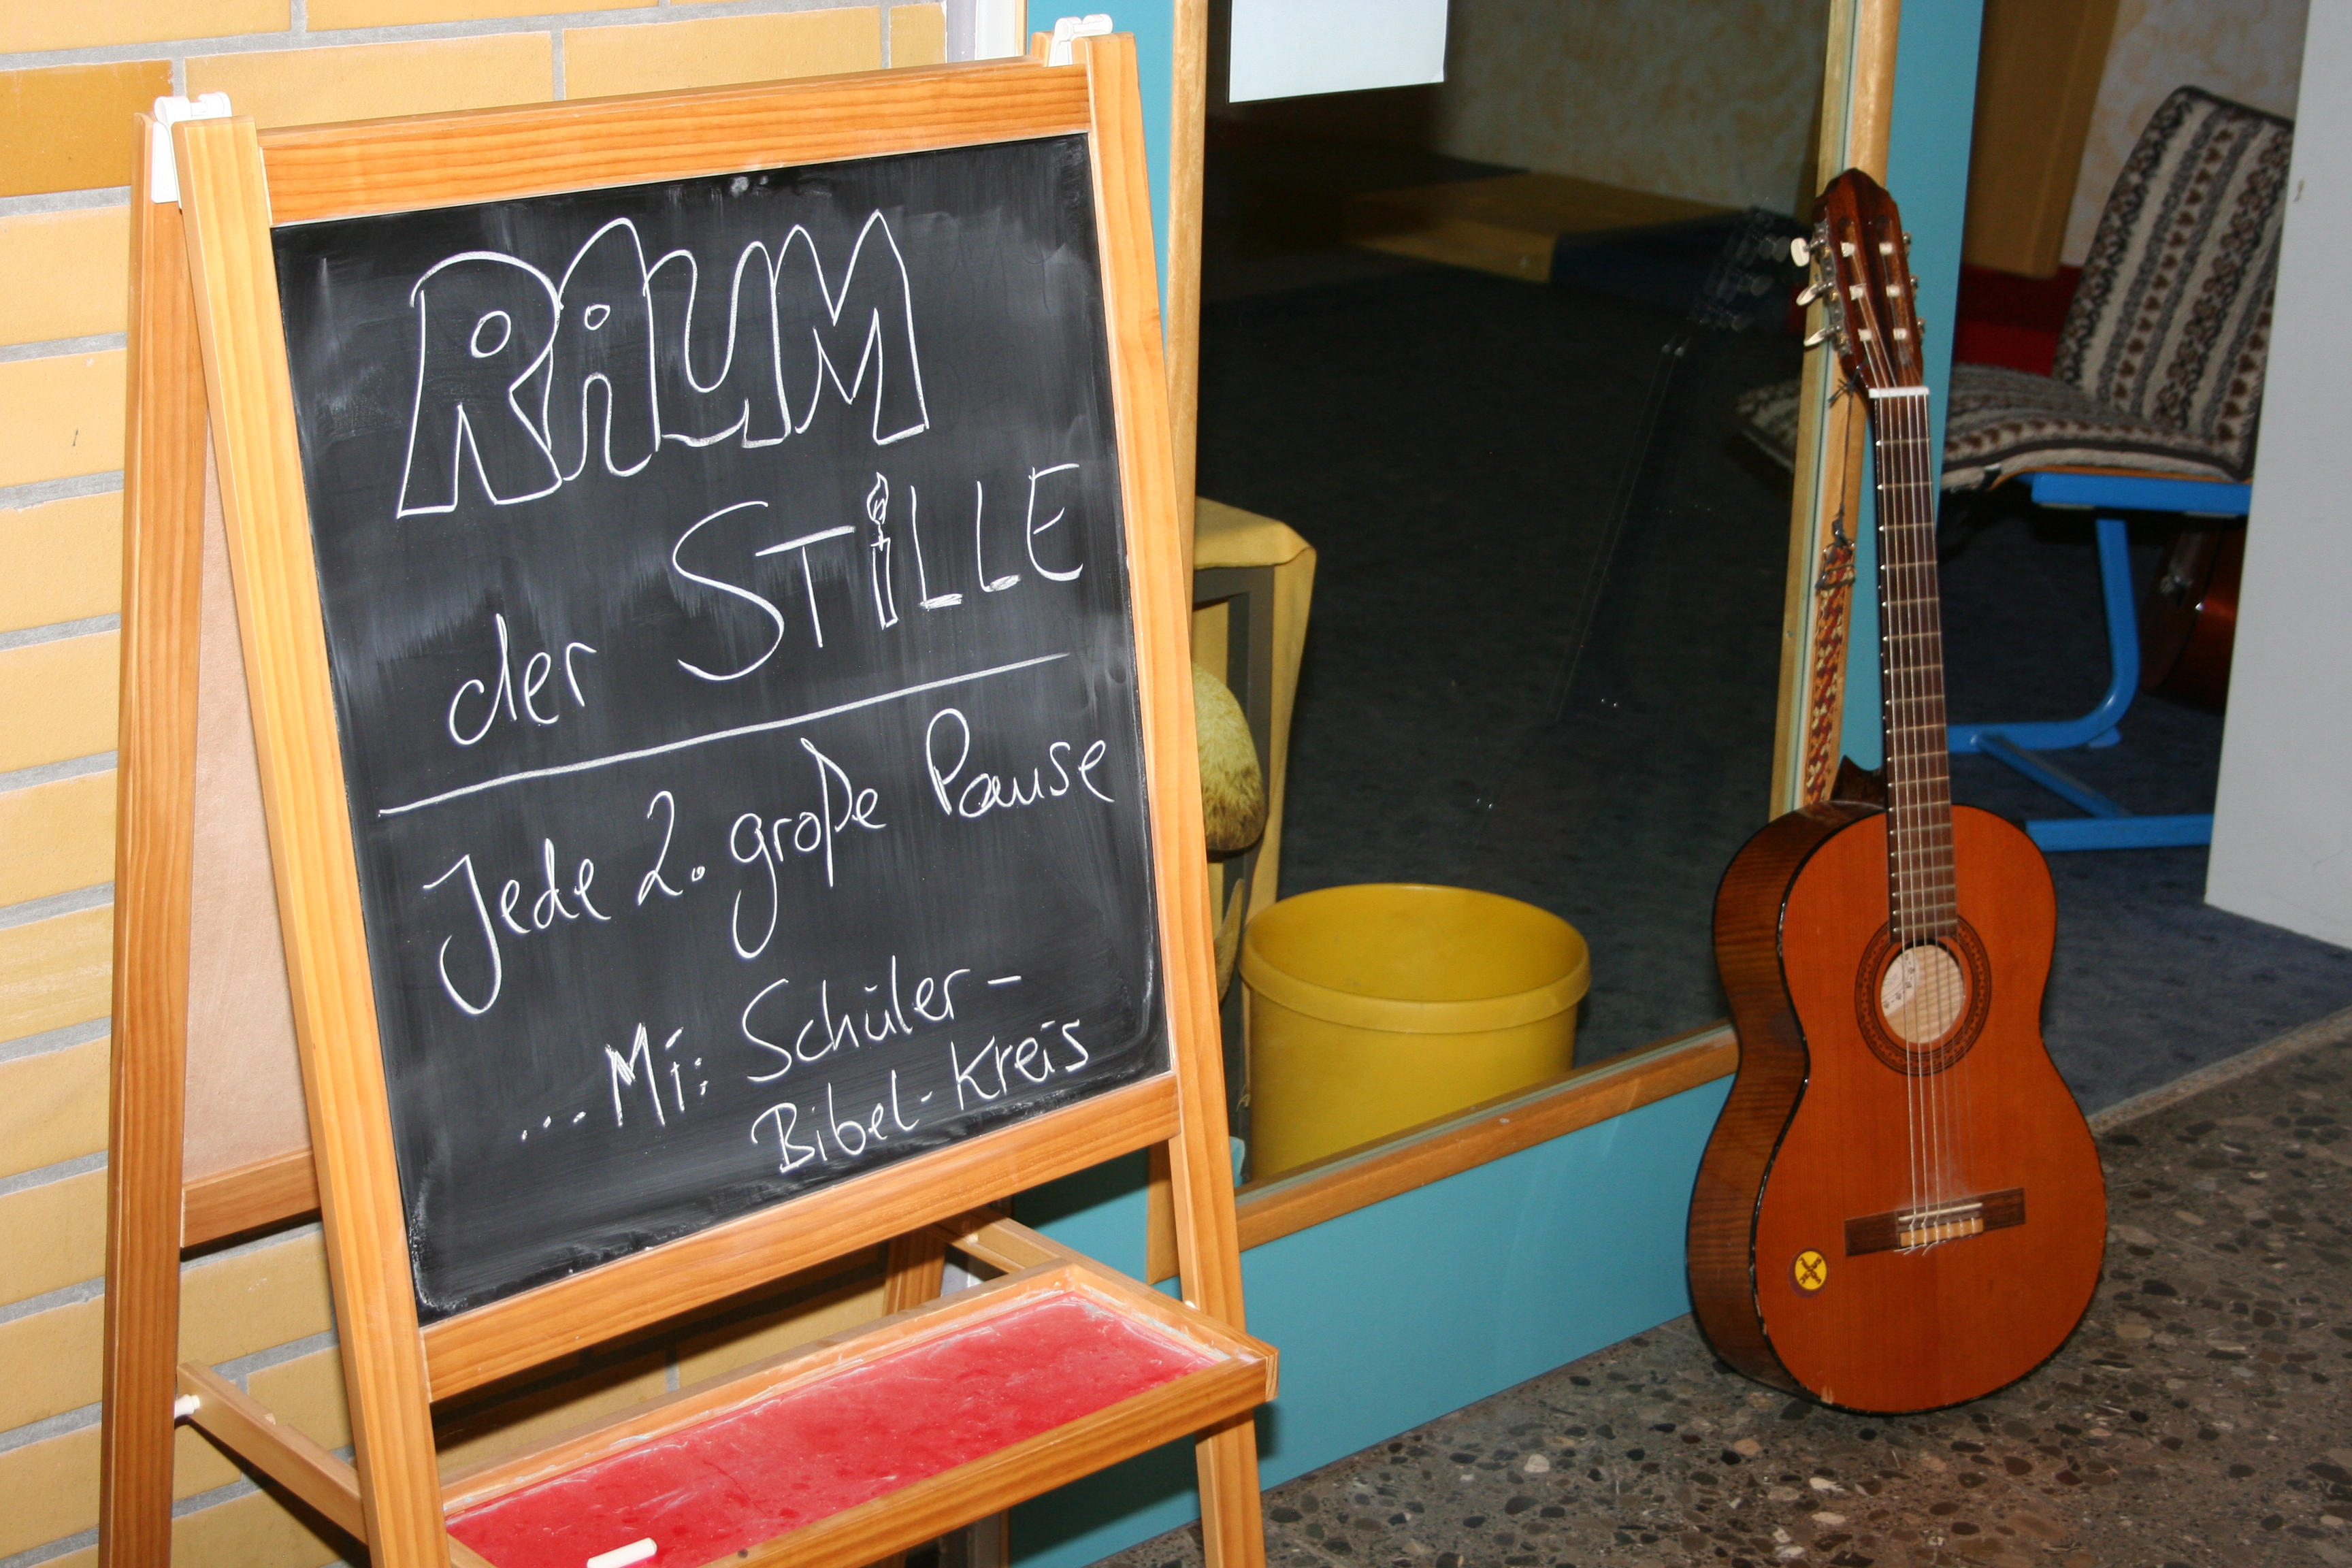 RAUM
der STiLLE
Jede 2. große Pause
...Mi: Schüler-
Bibel-Kreis